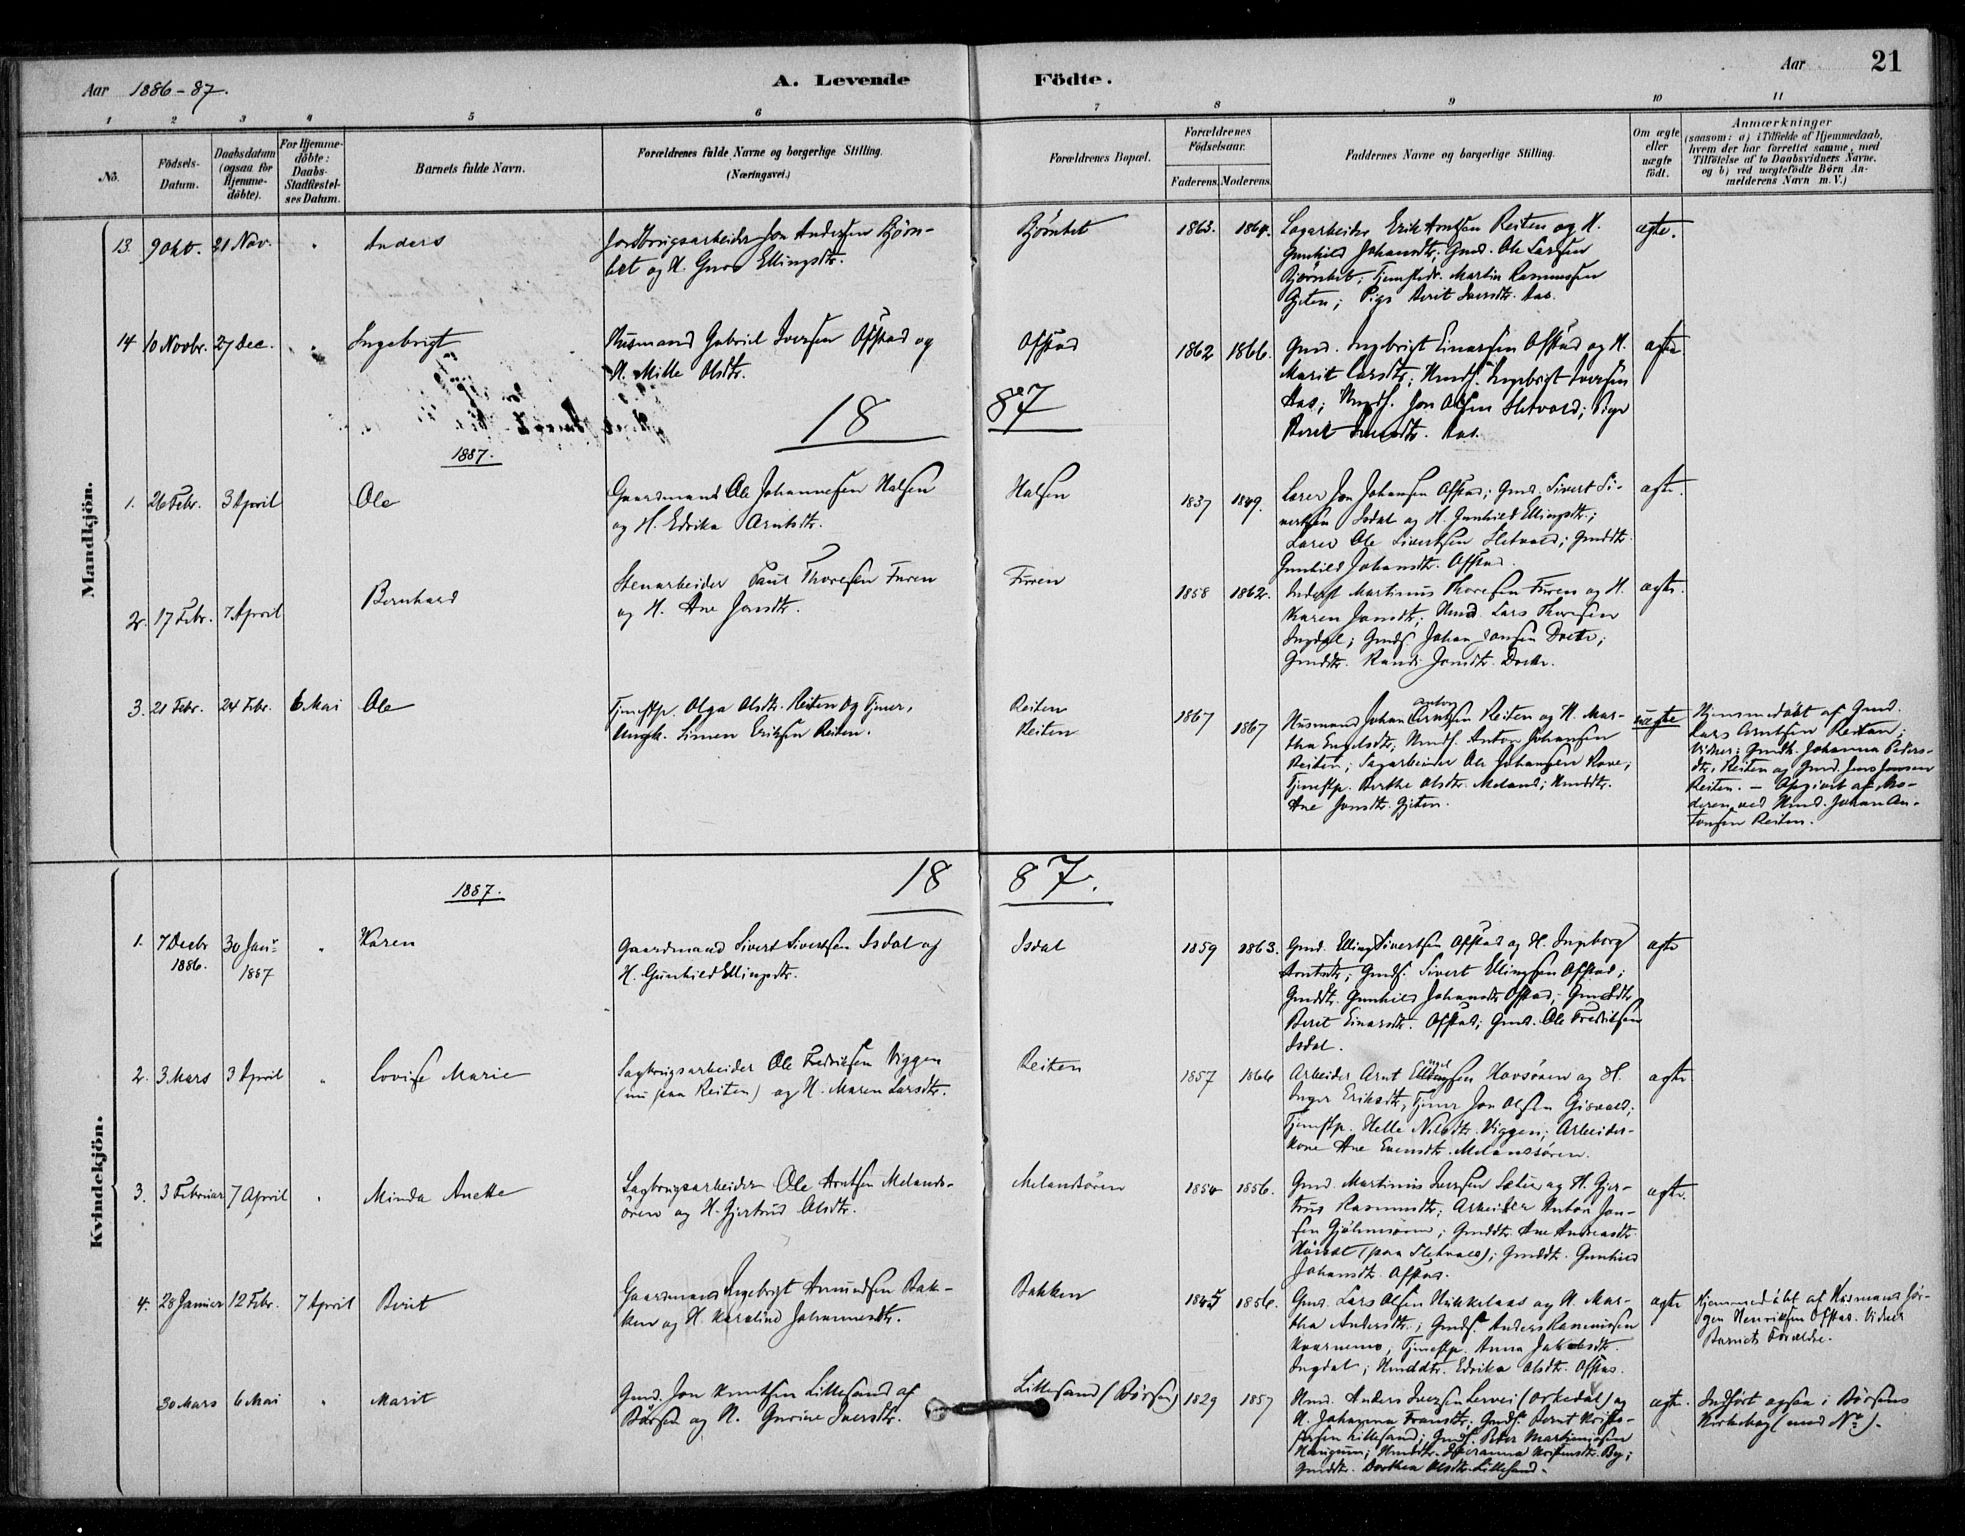 Aar 1886-87.
A. Levende Födte.
Aar 21
1 2 3 4 5 6 7 8 9 10 11
No.
Födsels-Datum.
Daabsdatum (ogsaa for Hjemmedöbte).
For Hjemmedöbte: Daabs-Stadfæstelses Datum.
Barnets fulde Navn.
Forældrenes fulde Navne og borgerlige Stilling.
(Næringsvei.)
Forældrenes Bopæl.
Forældrenes Födselsaar.
Faderens. Moderens.
Faddernes Navne og borgerlige Stilling.
Om ægte eller uægte födt.
Anmærkninger
(saasom: a) i Tilfælde af Hjemmedaab,
hvem der har forrettet samme, med
Tilföielse af to Daabsvidners Navne,
og b) ved uægtefödte Börn Anmelderens Navn m. V.)
Mandkjön.
13. 9 Okt. 21 Nov. " Anders
Jordbrugsarbeider Jon Andersen Björn-
bet og H. Guro Ellingsdtr.
Björnbet
1863. 1864.
Sagarbeider Erik Arntsen Reiten og H.
Gunhild Johansdtr; Gmd. Ole Larsen
Björnbet; Tjenestedr. Martin Rasmussen
Gjeten; Pige Berit Iversdtr. Aas.
ægte.
14 10 Novbr. 27 Dec. " Ingebrigt
Husmand Gabriel Iversen Ofstad og
H. Mille Olsdtr.
Ofstad
1862 1866.
Gmd. Ingebrigt Einarsen Ofstad og H.
Marit Larsdtr; Ungk. Ingebrigt Iversen
Aas; Ungk. Jon Olsen Sletvold; Pige
Beret Iversdtr. Aas.
ægte
18 87
1887.
1. 26 Febr. 3 April Ole
Gaardmand Ole Johannesen Halsen
og H. Edrika Arntsdtr.
Halsen
1837 1849.
Lærer Jon Johansen Ofstad; Gmd. Sivert Si-
vertsen Isdal og H. Gunhild Ellingsdtr.;
Lærer Ole Sivertsen Sletvold; Gmddtr.
Gunhild Johansdtr. Ofstad.
ægte.
2. 17 Febr. 7 April Bernhard
Stenarbeider Paul Thoresen Furen
og H. Ane Jonsdtr.
Furen
1858 1862.
Inderst Martinus Thoresen Furen og H.
Karen Jonsdtr; Hmd Lars Thoresen
Ingdal; Gmds. Johan Jonsen
Gmddtr. Randi Jonsdtr.
ægte.
3. 21 Febr. 24 Febr. 6 Mai Ole
Tjenestp. Olga Olsdtr. Reiten og Tjener,
Ungk. Simen Eriksen Reiten.
Reiten
Reiten
1867 1867
Husmand Johan Antonsen Reiten og H. Mar-
tha Engelsdtr; Hmds. Anton Johansen
Reiten; Sagarbeider Ole Johansen
Tjenestp. Berthe Olsdtr. Meland; Hmddtr.
Ane Jonsdtr. Gjeten.
uægte
Hjemmedöbt af Gmd.
Lars Arntsen Reitan;
Vidner: Gmdk. Johanna Peders-
dtr. Reiten og Gmd. Jens Jensen
Reiten. - Opgivet af Mo-
deren ved Hmd. Johan An-
tonsen Reiten.
Kvindekjön.
18 87.
1887.
1. 7 Decbr 1886. 30 Janr. 1887 " Karen
Gaardmand Sivert Sivertsen Isdal og
H. Gunhild Ellingsdtr.
Isdal
1859 1863.
Gmd. Elling Sivertsen Ofstad og H. Ingeborg
Arntsdtr; Gmds. Sivert Ellingsen Ofstad;
Gmddtr. Gunhild Johansdtr Ofstad; Gmddtr
Beret Einarsdtr. Ofstad; Gmd. Ole Fredriksen
Isdal.
ægte
2. 3 Mars 3 April " Lovise Marie
Sagbrugsarbeider Ole Fredriksen Viggen
(nu paa Reiten) og H. Maren Larsdtr.
Reiten
1857 1866
Arbeider Arnt Havsören og H.
Inger Eriksdtr, Tjener Jon Olsen Gisvold;
Tjenestp. Helle Nilsdtr. Viggen; Arbeider-
kone Ane Evensdtr. Melandsören.
ægte
3. 3 Februar 7 April " Minda Anette
Sagbrugsarbeider Ole Arntsen Melands-
ören og H. Gjertrud Olsdtr.
Melandsören
1854 1856.
Gmd. Martinus Iversen Sæter og H. Gjer-
trud Rasmusdtr; Arbeider Anton Jon-
sen Gjölmesören; Gmddtr Ane Andreasdtr
(paa Sletvold); Gmddtr. Gunhild
Johansdtr. Ofstad.
ægte.
4. 28 Januar 12 Febr. 7 April Berit
Gaardmand Ingebrigt Amundsen Bak-
ken og H. Karoline Johannesdtr.
Bakken
1845 1856.
Gmd. Lars Olsen og H. Mar-
tha Andersdtr.; Gmds. Anders Rasmussen
Kvarnemo, Tjenestp. Anna Jakobsdtr.
Ingdal; Hmddtr. Edrika Olsdtr. Ofstad.
ægte
Hjemmedöbt af Husmand Jör-
gen Henriksen Ofstad. Vidner
Barnets Forældre.
30 Mars 6 Mai " Marit
Gmd. Jon Knutsen Lillesand af
Börsen og H. Gurine Iversdtr.
Lillesand (Börsen)
1829 1857
Hmd. Anders Iversen (Orkedal) og
H. Johanna Fransdtr; Gmds. Bernt Kristo-
fersen Lillesand; Gmds. Peder Martiniusen
By;
Gmddtr. Dorthea Olsdtr. Lillesand.
ægte.
Indfört ogsaa i Börsens
Kirkebog (med No).